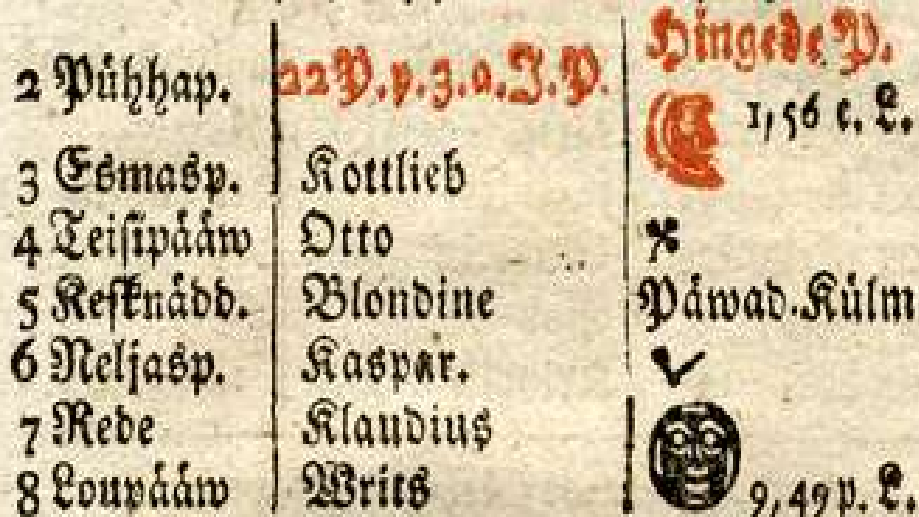 Hingede P.
2 Pühhap. 22 P. p. 3. a. J. P.
1, 56 e. L.
3 Esmasp. Kottlieb
4 Teisipääw Otto
5 Kesknädd. Blondine Päwad. Külm
6 Neljasp. Kaspar.
7 Rede Klaudius
8 Loupääw Writs 9, 49 p. L.